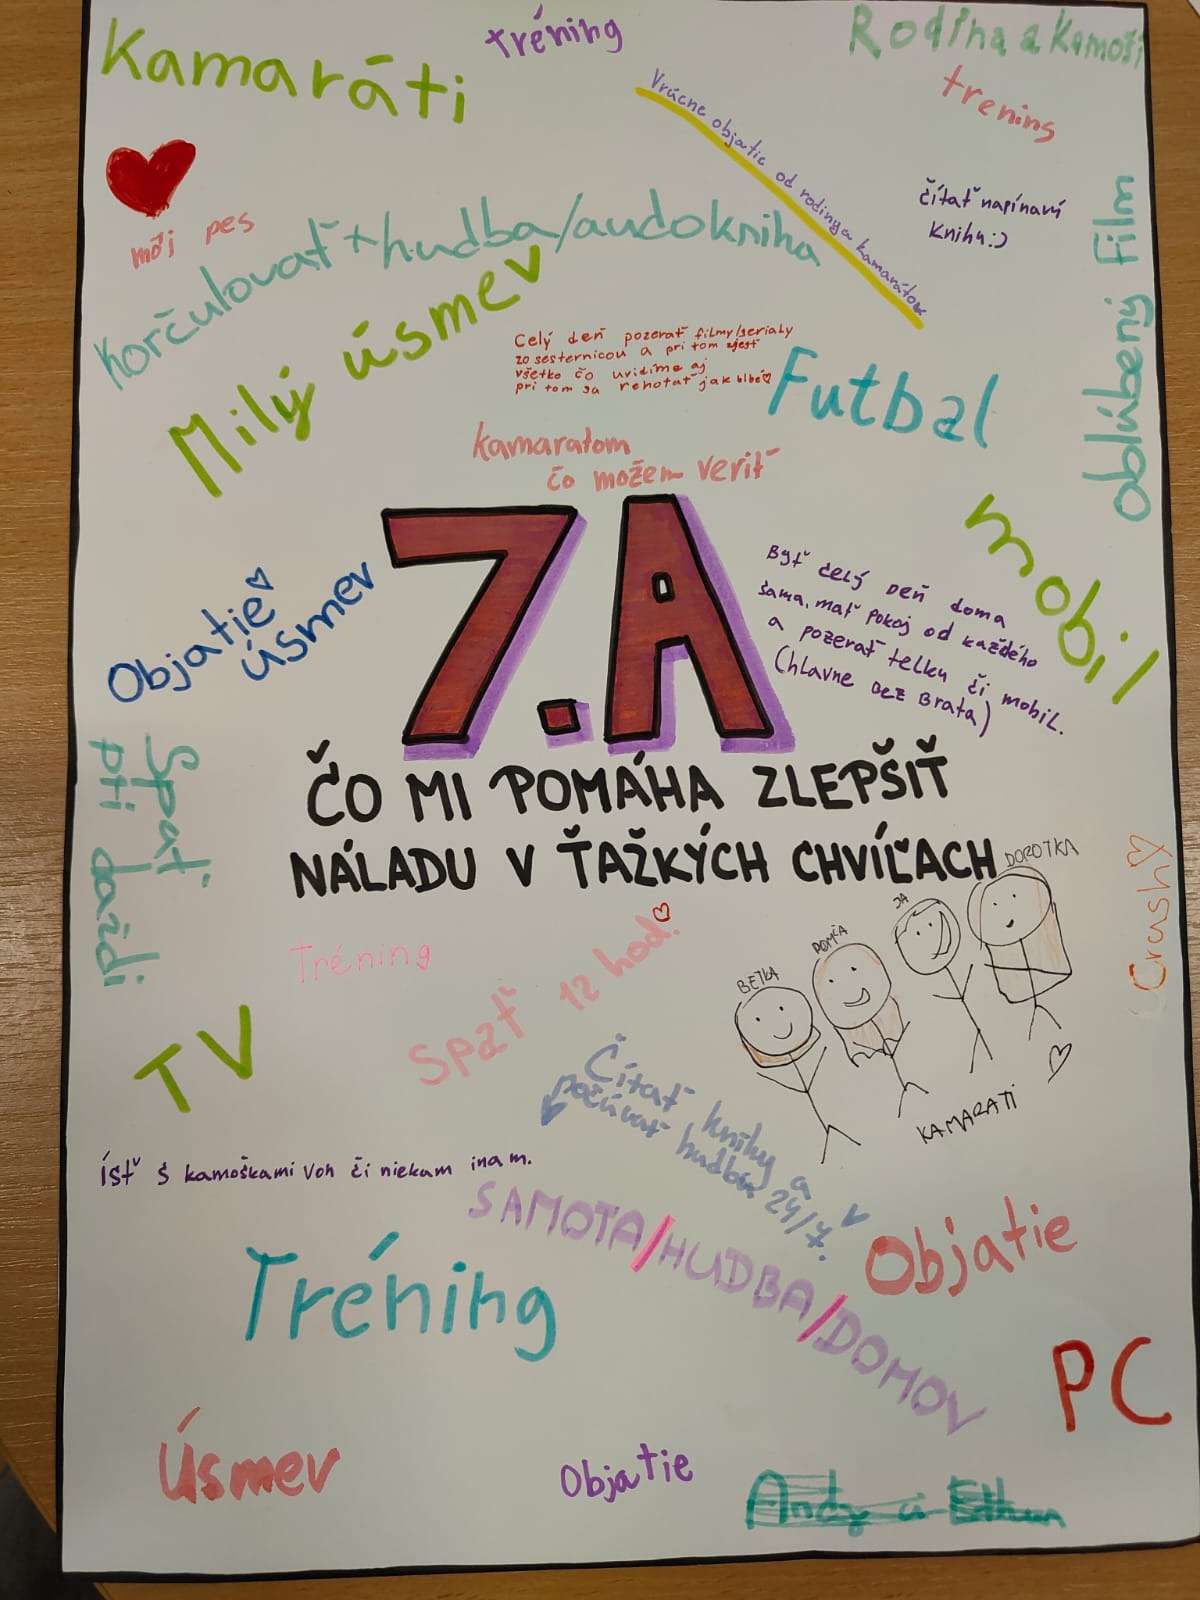 Kamaráti
tréning
Rodina a Kamoši
trening
Vrúcne objatie od rodiny a kamarátov
čítať napínavú
Knihu:)
môj pes
Korčulovať + hudba/audokniha
Milý úsmev
obľúbený film
Celý deň pozerať filmy/serialy
zo sesternicou a pri tom zjesť
všetko čo uvidíme aj
pri tom sa rehotať jak blbé
Futbal
Kamaratom
čo možem veriť
mobil
Objatie
úsmev
7.A
Byť celý deň doma
sama, mať pokoj od každého
a pozerať telku či mobil.
(hlavne bez brata)
ČO MI POMÁHA ZLEPŠIŤ
NÁLADU V ŤAŽKÝCH CHVÍĽACH
Spať
pri daždi
Crush
Tréning
Spať 12 hod.
BETKA
DOMČA
JA
DOROTKA
KAMARATI
TV
Čítať knihy a
počúvať hudbu 24/7.
ísť s kamoškami von či niekam inam.
SAMOTA/HUDBA/DOMOV
Objatie
Tréning
PC
Úsmev
Objatie